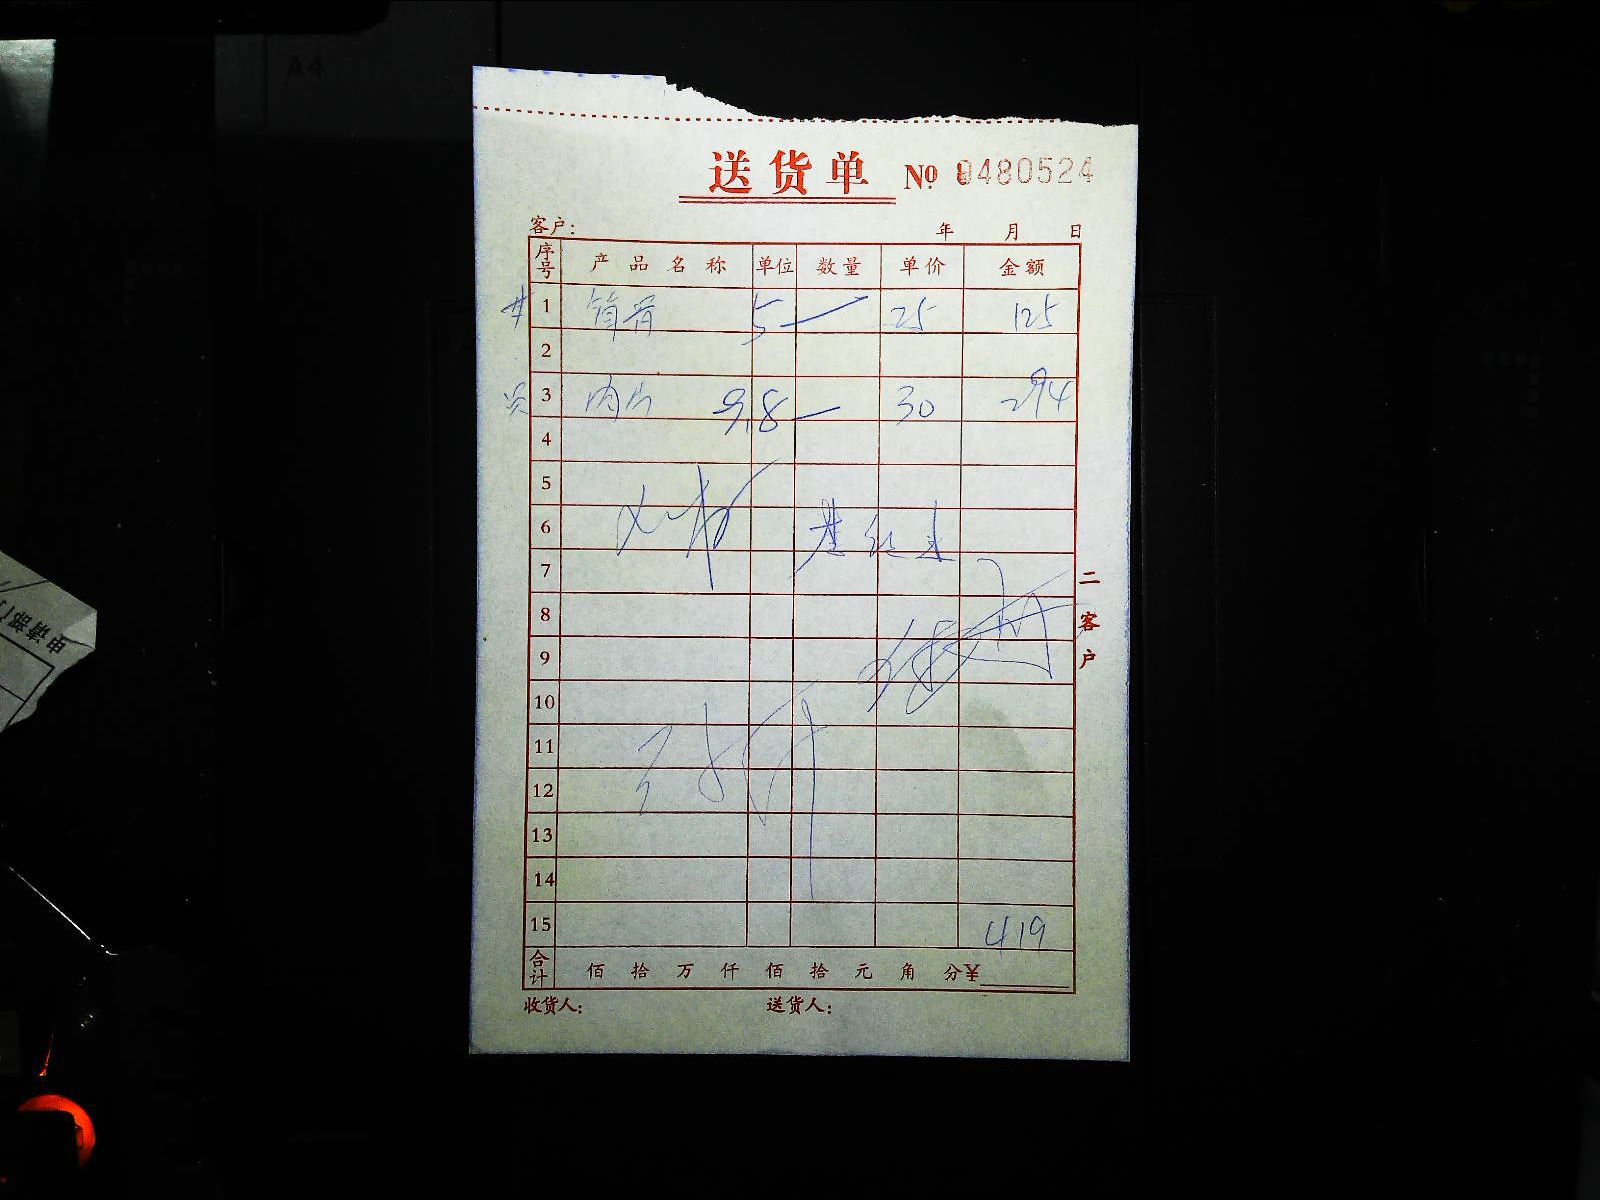 A4
送货单 № 9480524
客户： 年 月 日
序号 产品名称 单位 数量 单价 金额
1 筒骨 5 — 25 125
2
3 肉片 9.8 — 30 294
4
5
6
7
8
9
10
11
12
13
14
15 419
合计 佰 拾 万 仟 佰 拾 元 角 分￥
收货人： 送货人：
二客户
申请部门